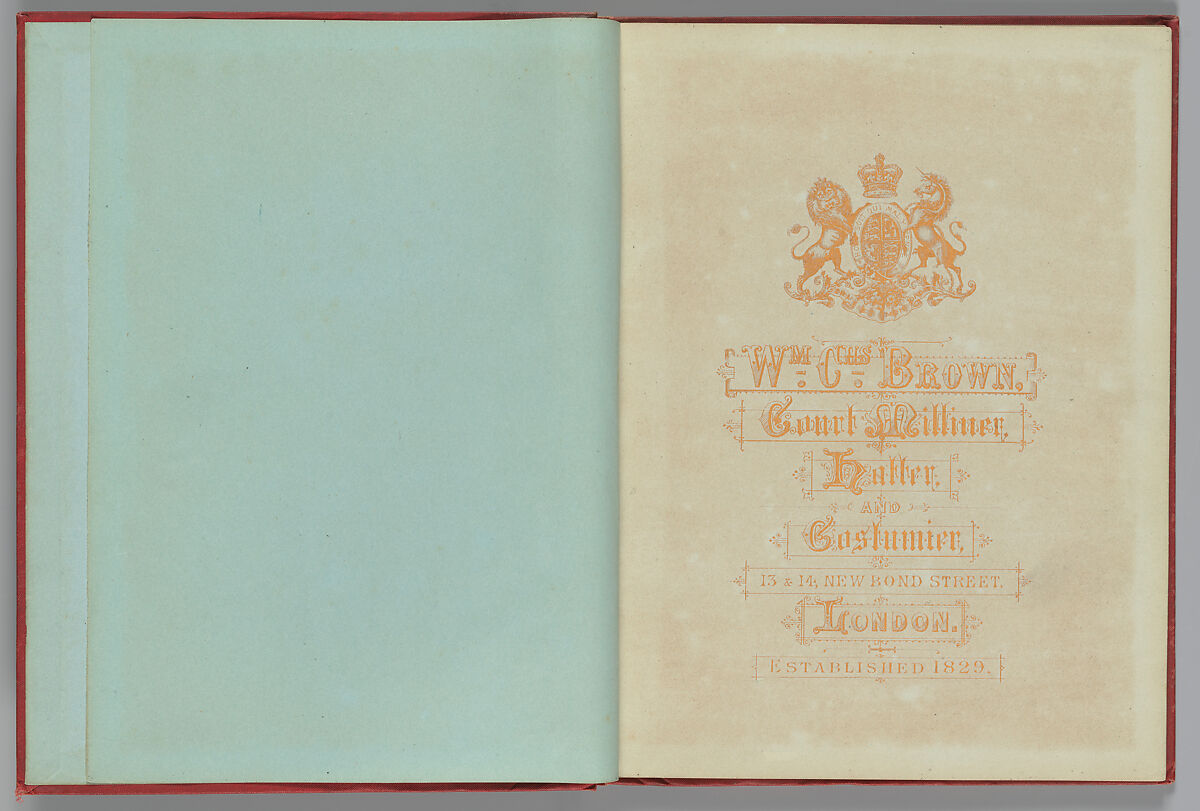 Wᴹ. Cᴴˢ. Brown,
Court Milliner,
Hatter,
AND
Costumier,
13 & 14, NEW BOND STREET.
London.
Established 1829.